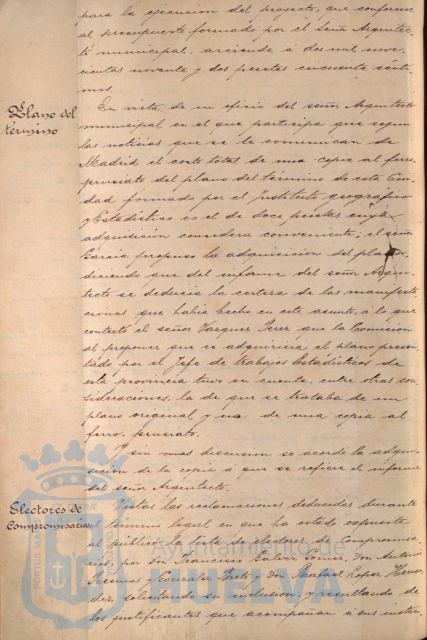 para la ejecucion del proyecto, que conforme
al presupuesto formado por el Señor Arquitec-
to municipal, asciende a dos mil nove-
cientas noventa y dos pesetas cincuenta cénti-
mos.
Plano del
término
En vista de un oficio del señor Arquitecto
municipal en el que participa que segun
las noticias que se le comunican de
Madrid el costo total de una copia al ferro
prusiato del plano del término de esta Ciu-
dad formado por el Instituto geográfico
y Estadístico es el de doce pesetas cuya
adquisicion considera conveniente; el señor
Garcia propuso la adquisicion del plano
diciendo que del informe del señor Arqui-
tecto se deducia la certeza de las manifesta-
ciones que habia hecho en este asunto, a lo que
contestó el señor Vazquez Perez que la Comision
al proponer que se adquiriera el plano presen-
tado por el Jefe de trabajos Estadísticos de
esta provincia tuvo en cuenta, entre otras con-
sideraciones, la de que se trataba de un
plano original y no de una copia al
ferro-prusiato.
Y sin mas discusion se acordó la adqui-
sicion de la copia a que se refiere el informe
del señor Arquitecto.
Electores de
Compromisarios
Vistas las reclamaciones deducidas durante
el término legal en que ha estado expuesta
al público la lista de electores de Compromisa-
rios, por don Francisco Galvez Gomez, Don Antonio
y Gonzalez Nieto y Don Rafael Lopez Hernan-
dez, solicitando su inclusion, y resultando de
los justificantes que acompañan a sus instan-
Ayuntamiento de
HUELVA
PORTUS MARIS